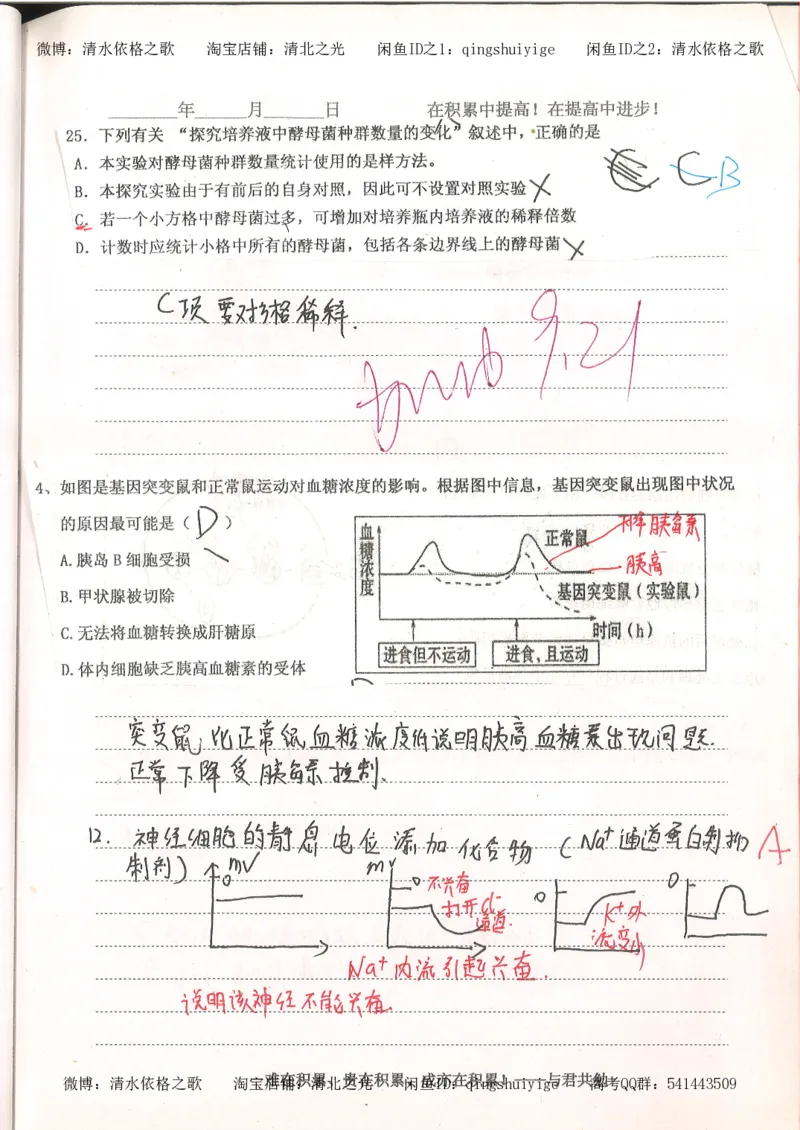 微博：清水依格之歌 淘宝店铺：清北之光 闲鱼ID之1：qingshuiyige 闲鱼ID之2：清水依格之歌
年 月 日 在积累中提高！在提高中进步！
25．下列有关 “探究培养液中酵母菌种群数量的变化”叙述中，正确的是
A．本实验对酵母菌种群数量统计使用的是样方法。
C B
B．本探究实验由于有前后的自身对照，因此可不设置对照实验
C．若一个小方格中酵母菌过多，可增加对培养瓶内培养液的稀释倍数
D．计数时应统计小格中所有的酵母菌，包括各条边界线上的酵母菌
C项要对
稀释.
9.21
4、如图是基因突变鼠和正常鼠运动对血糖浓度的影响。根据图中信息，基因突变鼠出现图中状况
的原因最可能是（D）
A.胰岛B细胞受损
B.甲状腺被切除
C.无法将血糖转换成肝糖原
D.体内细胞缺乏胰高血糖素的受体
血糖浓度
正常鼠
降胰岛素
胰高
基因突变鼠（实验鼠）
时间(h)
进食但不运动 进食，且运动
突变鼠比正常鼠血糖浓度低说明胰高血糖素出现问题.
正常下降受胰岛素控制.
12. 神经细胞的静息电位添加化合物（Na+通道蛋白
A
制剂）
mV
0
mV
0
不兴奋
打开Cl-
通道.
0
K+外
流变少
0
Na+内流引起兴奋.
说明该神经不能兴奋.
难在积累！贵在积累！成亦在积累！——与君共勉
微博：清水依格之歌 淘宝店铺：清北之光 闲鱼ID：qingshuiyige 高考QQ群：541443509